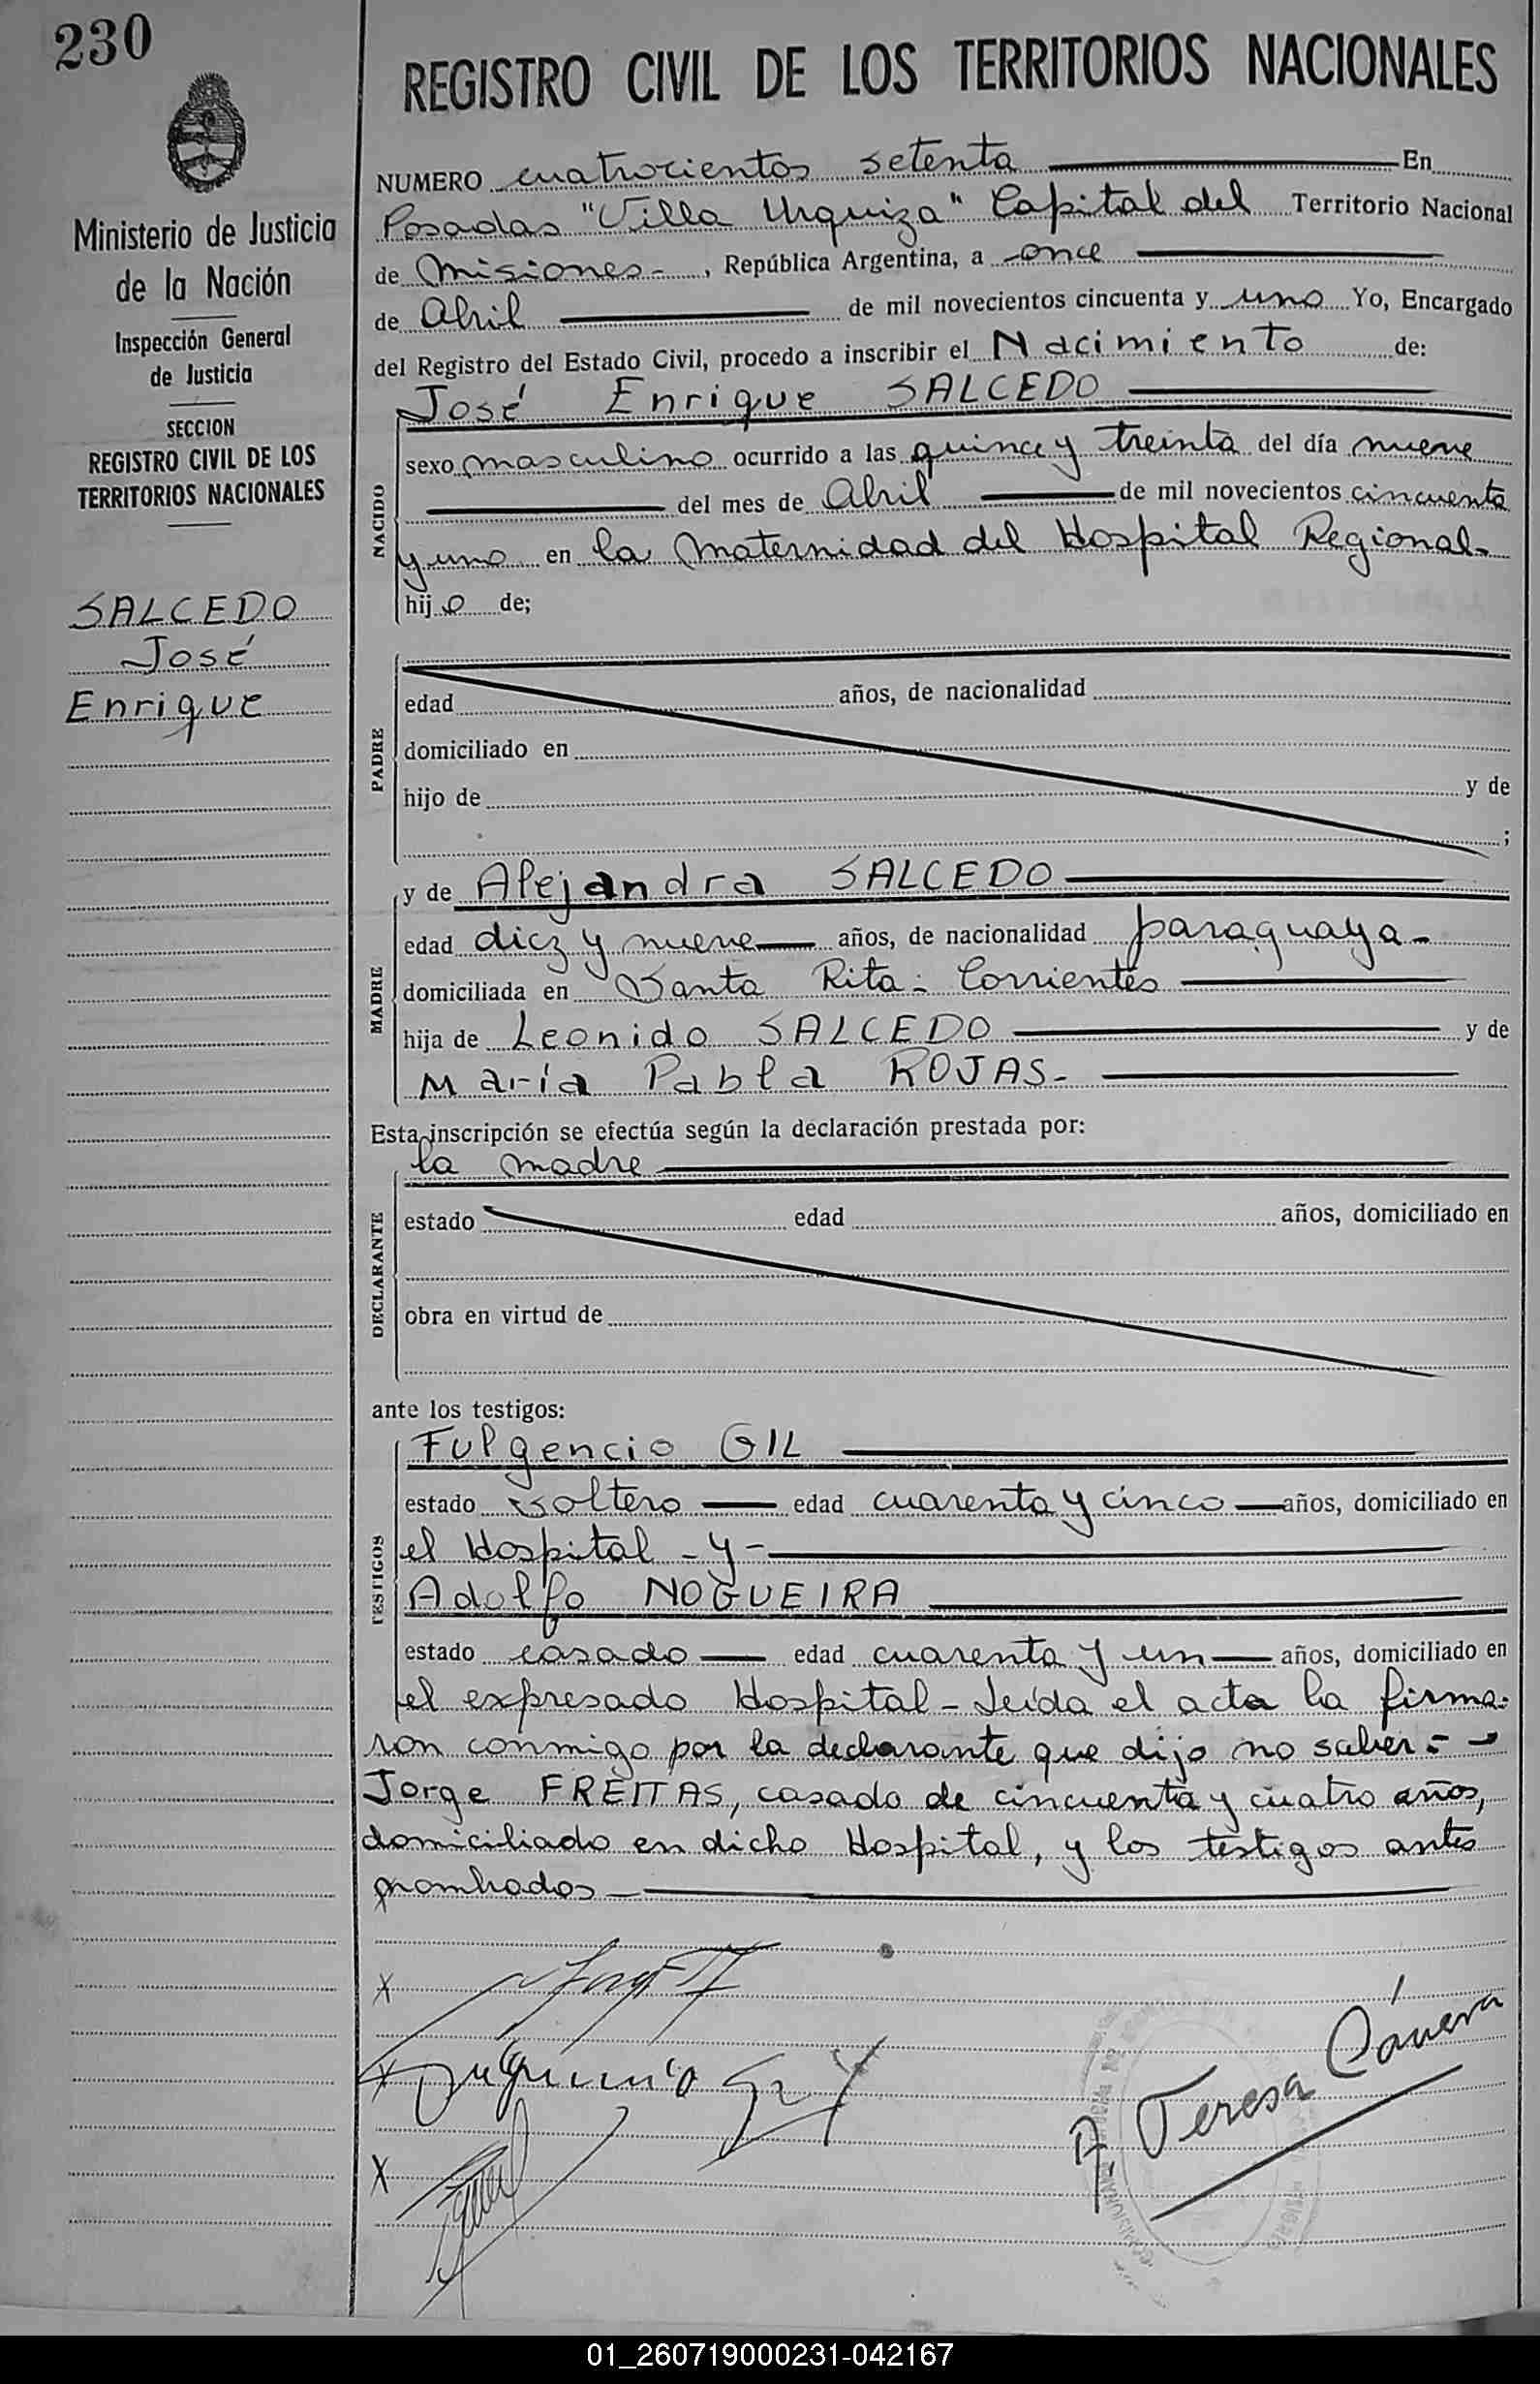 230
REGISTRO CIVIL DE LOS TERRITORIOS NACIONALES
Ministerio de Justicia
de la Nación
Inspección General
de Justicia
SECCION
REGISTRO CIVIL DE LOS
TERRITORIOS NACIONALES
SALCEDO
José
Enrique
NUMERO cuatrocientos setenta En
Posadas "Villa Urquiza" Capital del Territorio Nacional
de Misiones-, República Argentina, a once
de Abril de mil novecientos cincuenta y uno Yo, Encargado
del Registro del Estado Civil, procedo a inscribir el Nacimiento de:
José Enrique SALCEDO
NACIDO
sexo masculino ocurrido a las quince y treinta del día nueve
del mes de Abril de mil novecientos cincuenta
y uno en la Maternidad del Hospital Regional-
hijo de;
PADRE
edad años, de nacionalidad
domiciliado en
hijo de y de
;
MADRE
y de Alejandra SALCEDO
edad diez y nueve años, de nacionalidad paraguaya-
domiciliada en Santa Rita- Corrientes
hija de Leonido SALCEDO y de
María Pabla ROJAS-
Esta inscripción se efectúa según la declaración prestada por:
la madre
DECLARANTE
estado edad años, domiciliado en
obra en virtud de
ante los testigos:
TESTIGOS
Fulgencio GIL
estado soltero edad cuarenta y cinco años, domiciliado en
el Hospital - y -
Adolfo NOGUEIRA
estado casado edad cuarenta y un años, domiciliado en
el expresado Hospital- Leída el acta la firma-
ron conmigo por la declarante que dijo no saber: -
Jorge FREITAS, casado de cincuenta y cuatro años,
domiciliado en dicho Hospital, y los testigos antes
nombrados-
X
X
X
A. Teresa Cávera
01_260719000231-042167